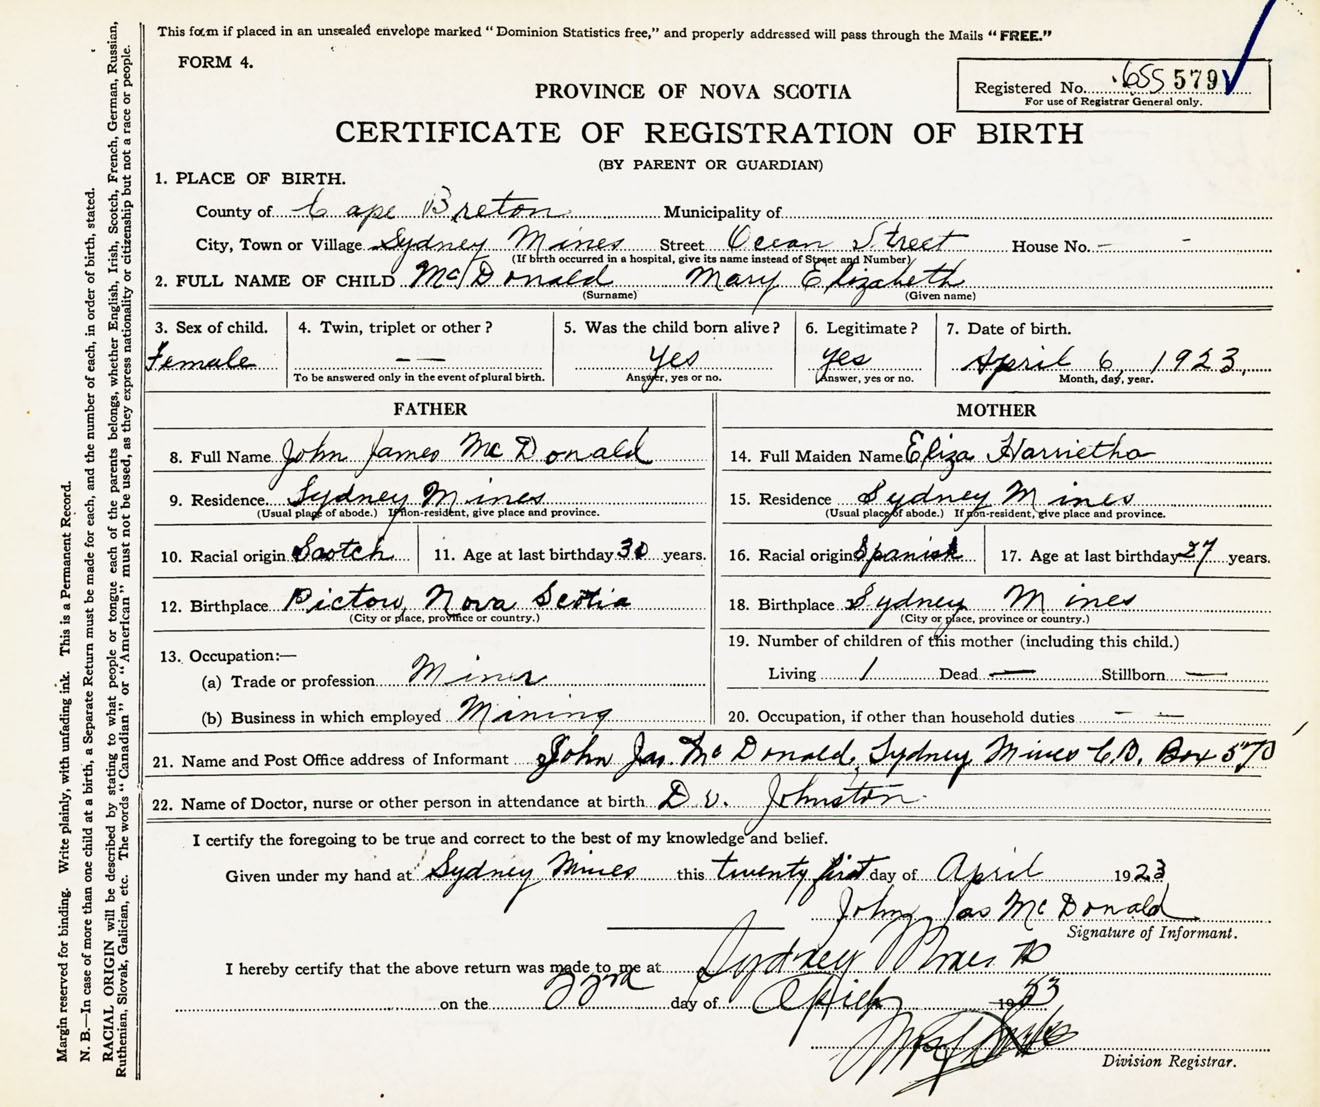 This form if placed in an unsealed envelope marked "Dominion Statistics free," and properly addressed will pass through the Mails "FREE."
FORM 4.
Registered No. 655 579
For use of Registrar General only.
PROVINCE OF NOVA SCOTIA
CERTIFICATE OF REGISTRATION OF BIRTH
(BY PARENT OR GUARDIAN)
1. PLACE OF BIRTH.
County of Cape Breton Municipality of
City, Town or Village Sydney Mines Street Ocean Street House No. - -
(If birth occurred in a hospital, give its name instead of Street and Number)
2. FULL NAME OF CHILD McDonald Mary Elizabeth
(Surname) (Given name)
3. Sex of child. 4. Twin, triplet or other? 5. Was the child born alive? 6. Legitimate? 7. Date of birth.
Female — — Yes Yes April 6, 1923.
To be answered only in the event of plural birth. Answer, yes or no. Answer, yes or no. Month, day, year.
FATHER
8. Full Name John James McDonald
9. Residence Sydney Mines
(Usual place of abode.) If non-resident, give place and province.
10. Racial origin Scotch 11. Age at last birthday 30 years.
12. Birthplace Pictou, Nova Scotia
(City or place, province or country.)
13. Occupation:—
(a) Trade or profession Miner
(b) Business in which employed Mining
MOTHER
14. Full Maiden Name Eliza Harrietha
15. Residence Sydney Mines
(Usual place of abode.) If non-resident, give place and province.
16. Racial origin Spanish 17. Age at last birthday 27 years.
18. Birthplace Sydney Mines
(City or place, province or country.)
19. Number of children of this mother (including this child.)
Living 1 Dead — Stillborn —
20. Occupation, if other than household duties — —
21. Name and Post Office address of Informant John Jas. McDonald, Sydney Mines C.B. Box 570
22. Name of Doctor, nurse or other person in attendance at birth Dr. Johnston
I certify the foregoing to be true and correct to the best of my knowledge and belief.
Given under my hand at Sydney Mines this twenty first day of April 1923
John Jas McDonald
Signature of Informant.
I hereby certify that the above return was made to me at Sydney Mines
on the 22nd day of April 19
Division Registrar.
Margin reserved for binding. Write plainly, with unfading ink. This is a Permanent Record.
N. B.—In case of more than one child at a birth, a Separate Return must be made for each, and the number of each, in order of birth, stated.
RACIAL ORIGIN will be described by stating to what people or tongue each of the parents belongs, whether English, Irish, Scotch, French, German, Russian,
Ruthenian, Slovak, Galician, etc. The words "Canadian" or "American" must not be used, as they express nationality or citizenship but not a race or people.